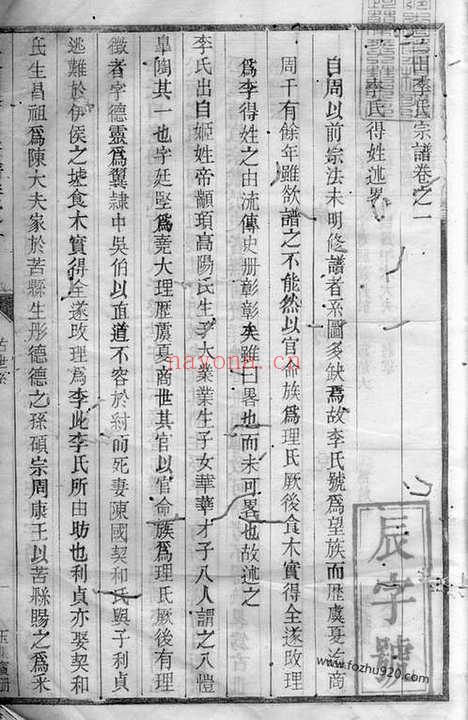 三田李氏宗譜卷之一
李氏得姓述畧
自周以前宗法未明修譜者系圖多缺焉故李氏號爲望族而歷虞夏洎商
周千有餘年雖欲譜之不能然以官命族爲理氏厥後食木實得全遂改理
爲李得姓之由流傳史册彰彰矣雖曰畧也而未可畧也故述之
李氏出自姬姓帝顓頊高陽氏生子大業業生子女華華才子八人謂之八愷
臯陶其一也字廷堅爲堯大理歷虞夏商世其官以官命族爲理氏厥後有理
徵者字德靈爲翼隸中吳伯以直道不容於紂而死妻陳國契和氏與子利貞
逃難於伊侯之墟食木實得全遂改理爲李此李氏所由助也利貞亦娶契和
氏生昌祖爲陳大夫家於苦縣生彤德德之孫碩宗周康王以苦縣賜之爲采
辰字號
nayona.cn
www.fozhu920.com